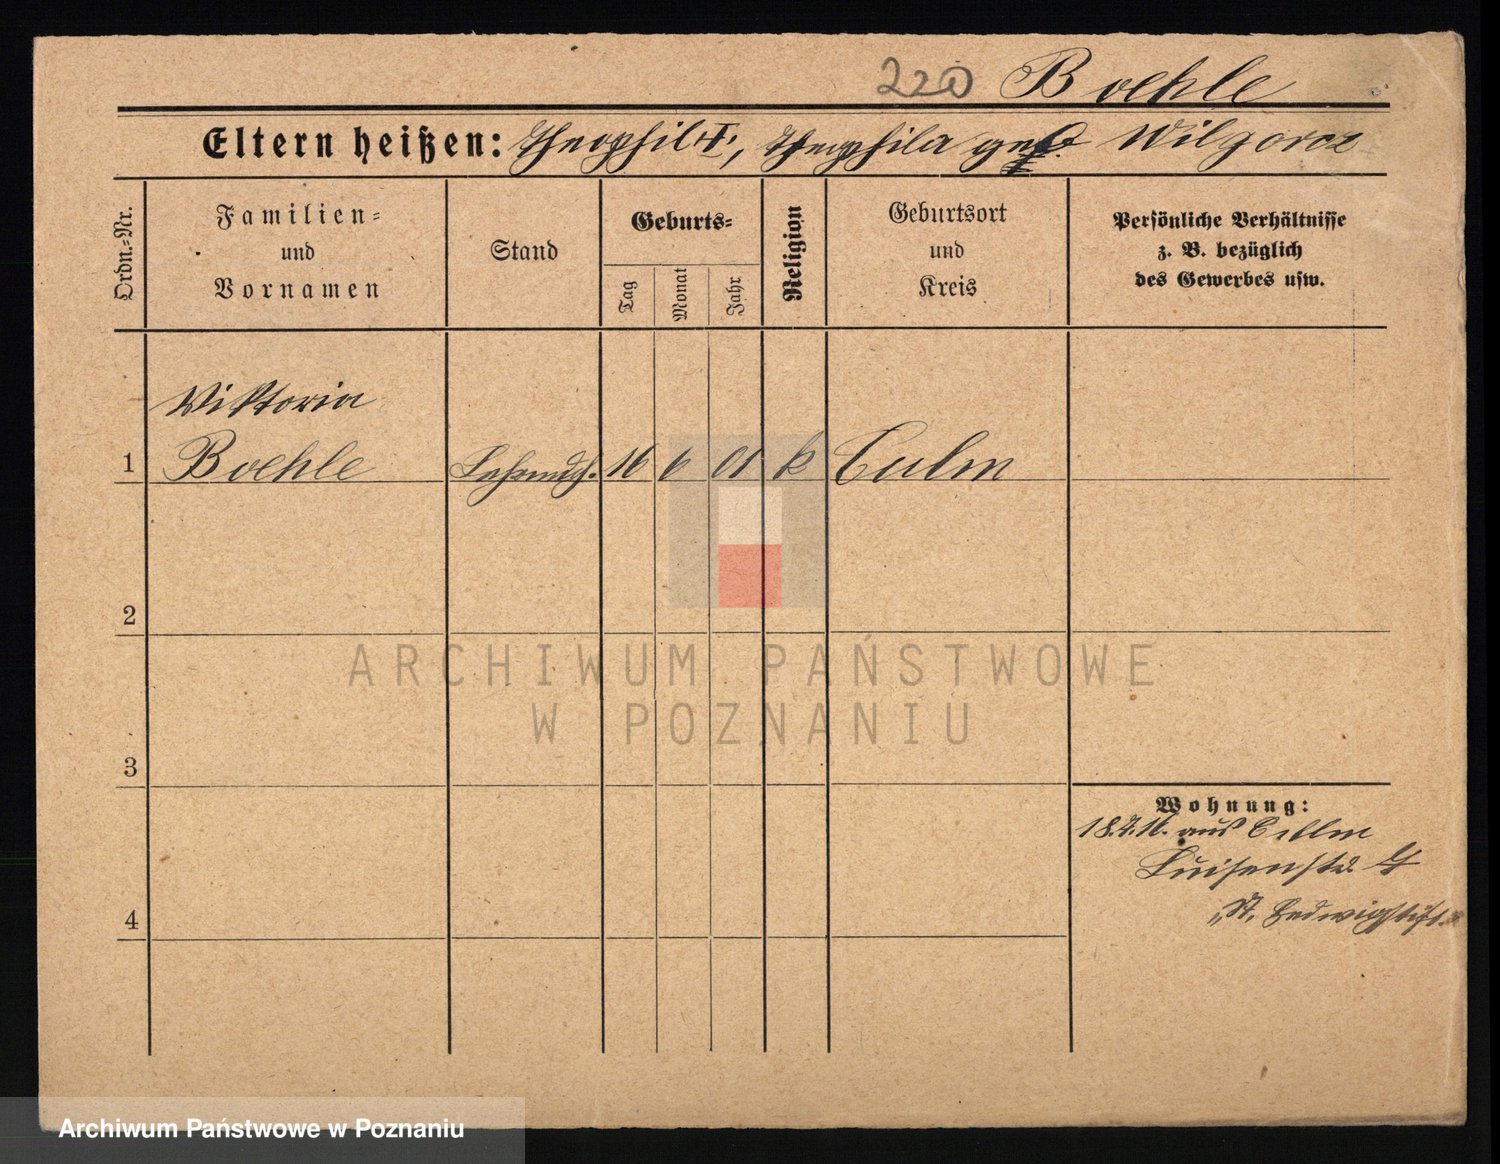 220 Boehle
Eltern heißen: Theophil †, Theophila geb. Wilgorcz
Ordn.-Nr.
Familien-
und
Vornamen
Stand
Geburts-
Tag
Monat
Jahr
Religion
Geburtsort
und
Kreis
Persönliche Verhältnisse
z. B. bezüglich
des Gewerbes usw.
Viktoria
1 Boehle 16 6 01 k Culm
2
3
4
Wohnung:
aus Culm
Luisenstr.
„St. Hedwigstift
ARCHIWUM PAŃSTWOWE
W POZNANIU
Archiwum Państwowe w Poznaniu